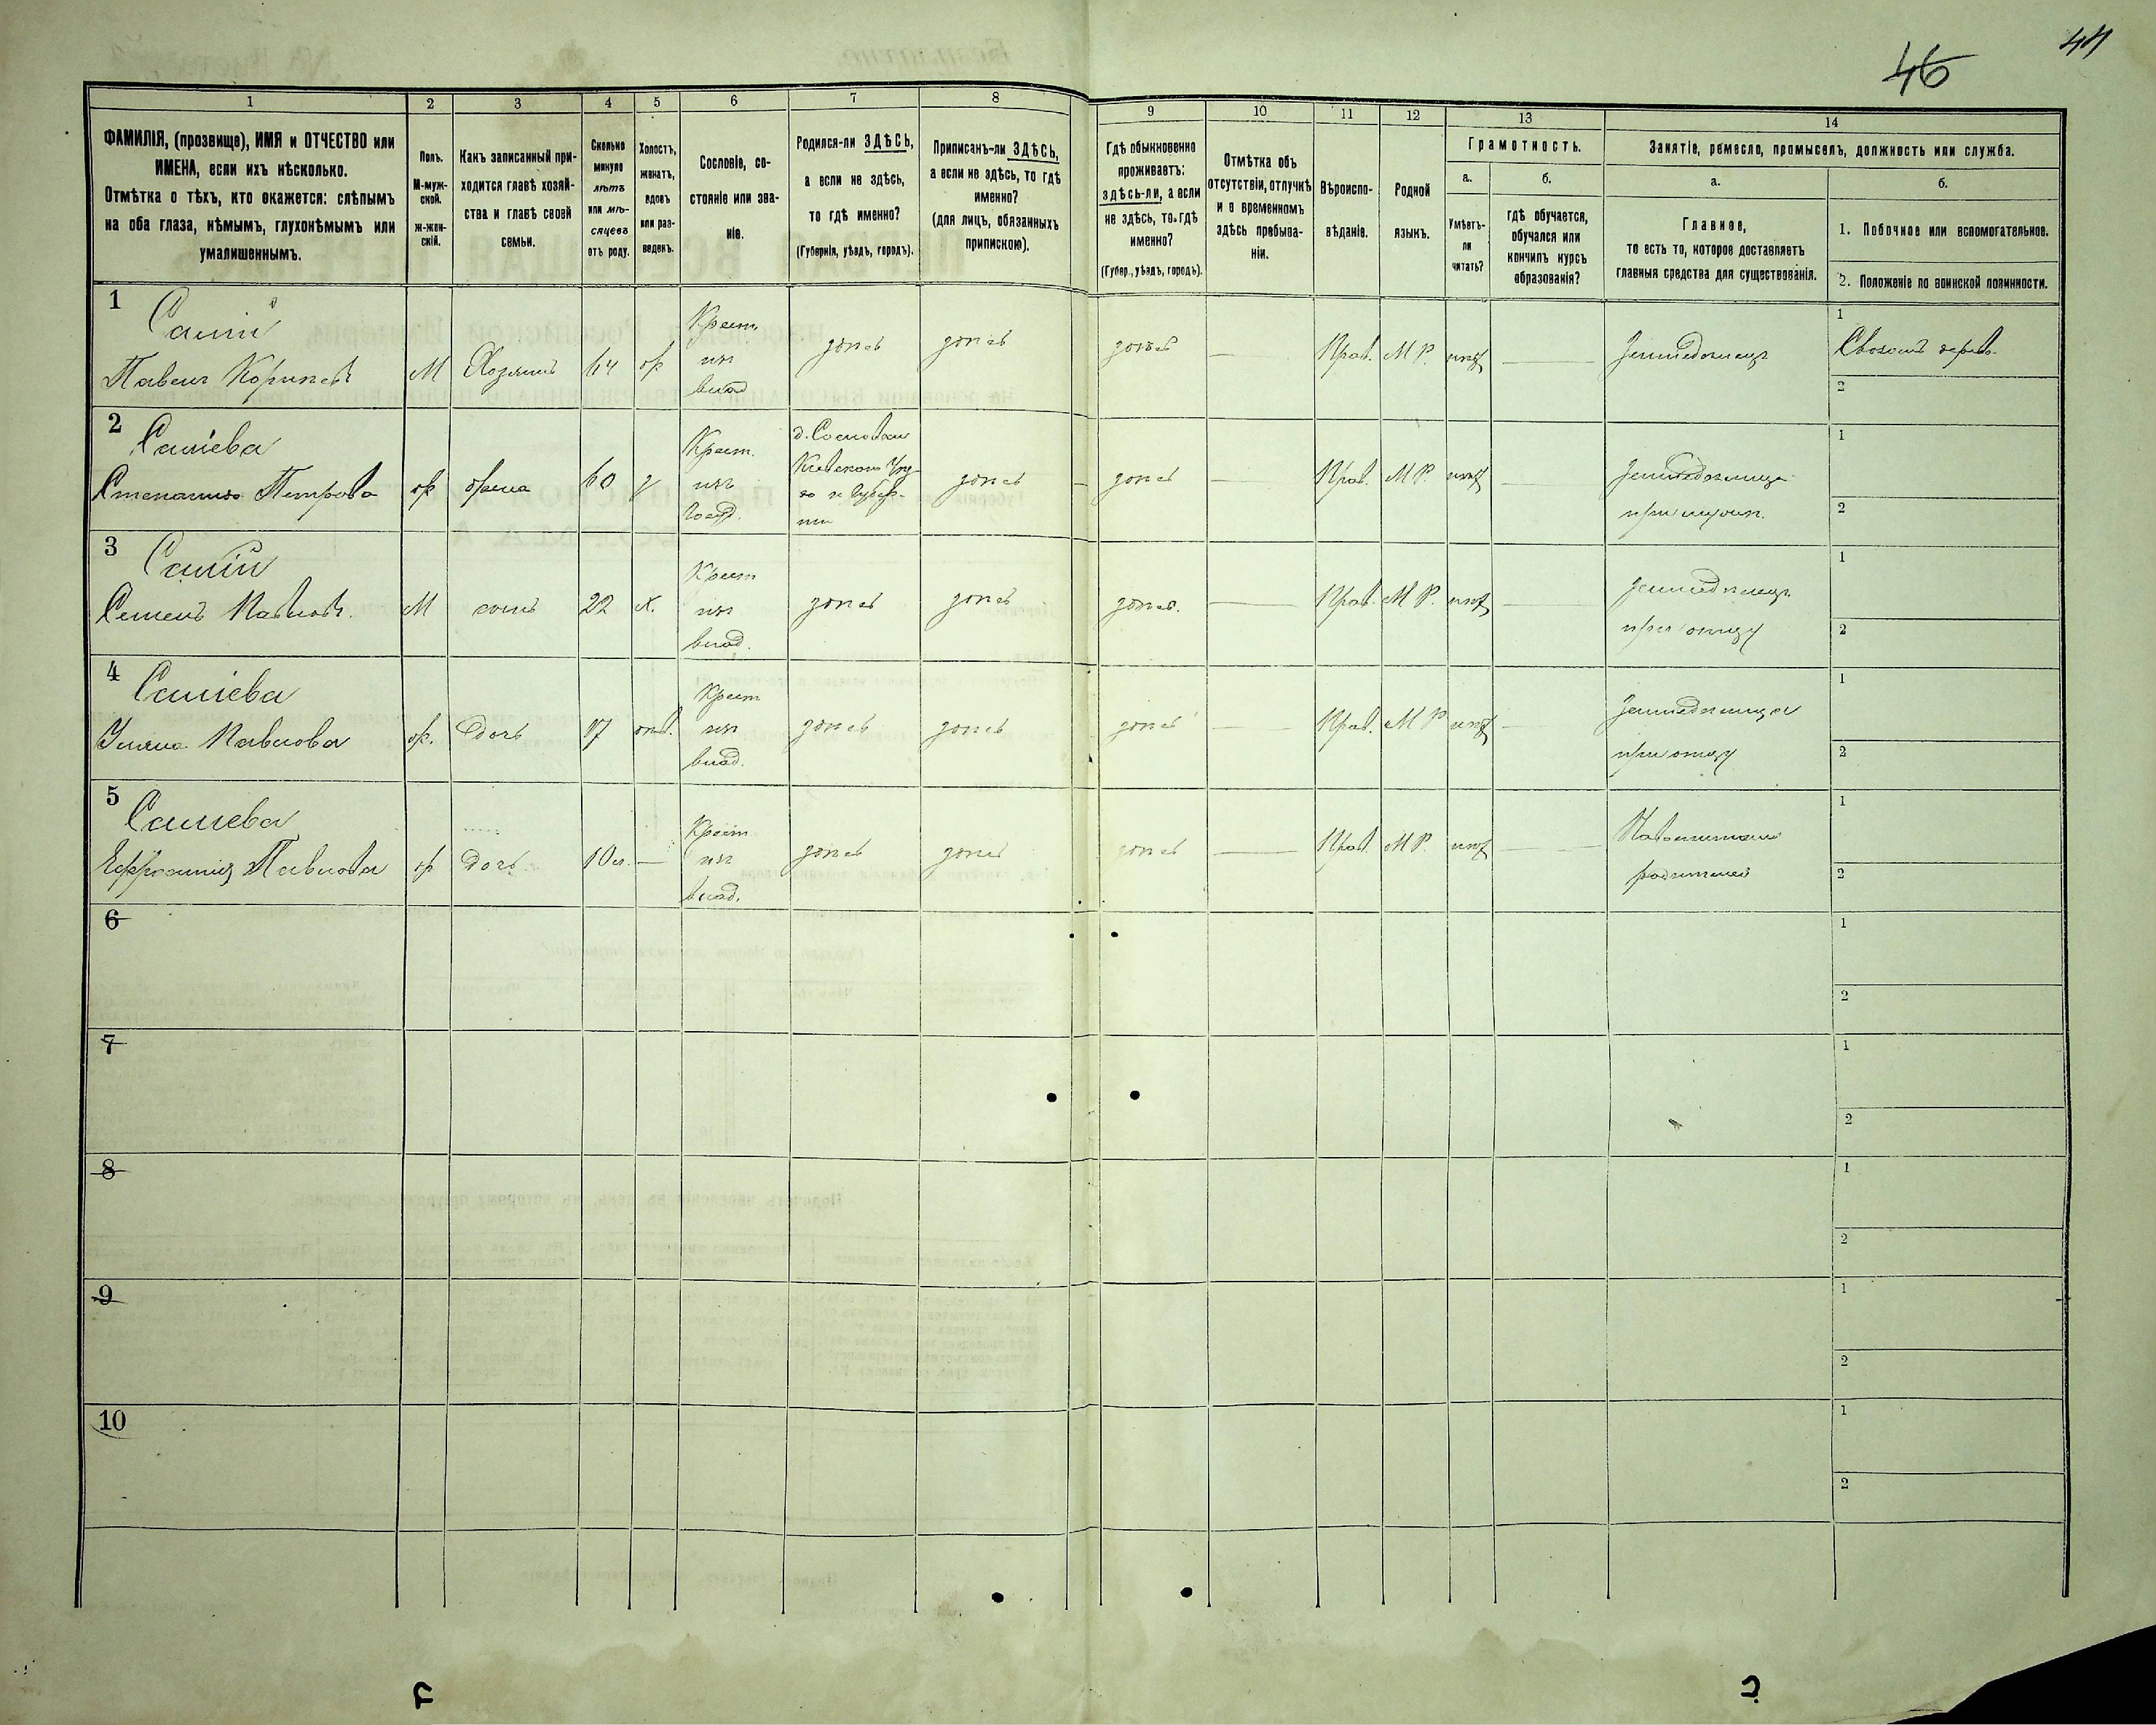 46
44
1
2
3
4
5
6
7
8
9
10
11
12
13
14
ФАМИЛІЯ, (прозвище), ИМЯ и ОТЧЕСТВО или
ИМЕНА, если ихъ нѣсколько.
Отмѣтка о тѣхъ, кто окажется: слѣпымъ
на оба глаза, нѣмымъ, глухонѣмымъ или
умалишеннымъ.
Полъ.
М-муж-
ской.
Ж-жен-
скій.
Какъ записанный при-
ходится главѣ хозяй-
ства и главѣ своей
семьи.
Сколько
минуло
лѣтъ
или мѣ-
сяцевъ
отъ роду.
Холостъ,
женатъ,
вдовъ
или раз-
веденъ.
Сословіе, со-
стояніе или зва-
ніе.
Родился-ли ЗДѢСЬ,
а если не здѣсь,
то гдѣ именно?
(Губернія, уѣздъ, городъ).
Приписанъ-ли ЗДѢСЬ,
а если не здѣсь, то гдѣ
именно?
(для лицъ, обязанныхъ
припискою).
Гдѣ обыкновенно
проживаетъ:
здѣсь-ли, а если
не здѣсь, то гдѣ
именно?
(Губер., уѣздъ, городъ).
Отмѣтка объ
отсутствіи, отлучкѣ
и о временномъ
здѣсь пребыва-
ніи.
Вѣроиспо-
вѣданіе.
Родной
языкъ.
Грамотность.
а.
Умѣетъ-
ли
читать?
б.
гдѣ обучается,
обучался или
кончилъ курсъ
образованія?
Занятіе, ремесло, промыселъ, должность или служба.
а.
Главное,
то есть то, которое доставляетъ
главныя средства для существованія.
б.
1. Побочное или вспомогательное.
2. Положеніе по воинской повинности.
1
Салій
Павелъ
М
Хозяинъ
64
ж
Крест.
изъ
влад.
здѣсь
здѣсь
здѣсь
—
Прав.
М Р.
нѣтъ
—
Земледѣлецъ
1
2
2
Саліева
Степанида Петрова
ж
жена
60
з
Крест.
изъ
госуд.
д. Сосновки
Кіевскаго Уѣз-
да и Губер-
ніи
здѣсь
здѣсь
Прав.
М Р.
нѣтъ
Земледѣлица
при мужѣ
1
2
3
Салій
Семенъ Павловъ.
М
сынъ
22
х.
Крест
изъ
влад.
здѣсь
здѣсь
здѣсь.
—
Прав.
М Р.
нѣтъ
—
Земледѣлецъ
при отцѣ
1
2
4
Саліева
Павлова
ж.
дочь
17
дѣв.
Крест
изъ
влад.
здѣсь
здѣсь
здѣсь
—
Прав.
М Р
нѣтъ
—
Земледѣлица
при отцѣ
1
2
5
Саліева
Ефросинія Павлова
ж
дочь
10 л.
—
Крест
изъ
влад.
здѣсь
здѣсь
здѣсь
—
Прав.
М Р.
нѣтъ
—
родителей
1
2
6
1
2
7
1
2
8
1
2
9
1
2
10
1
2